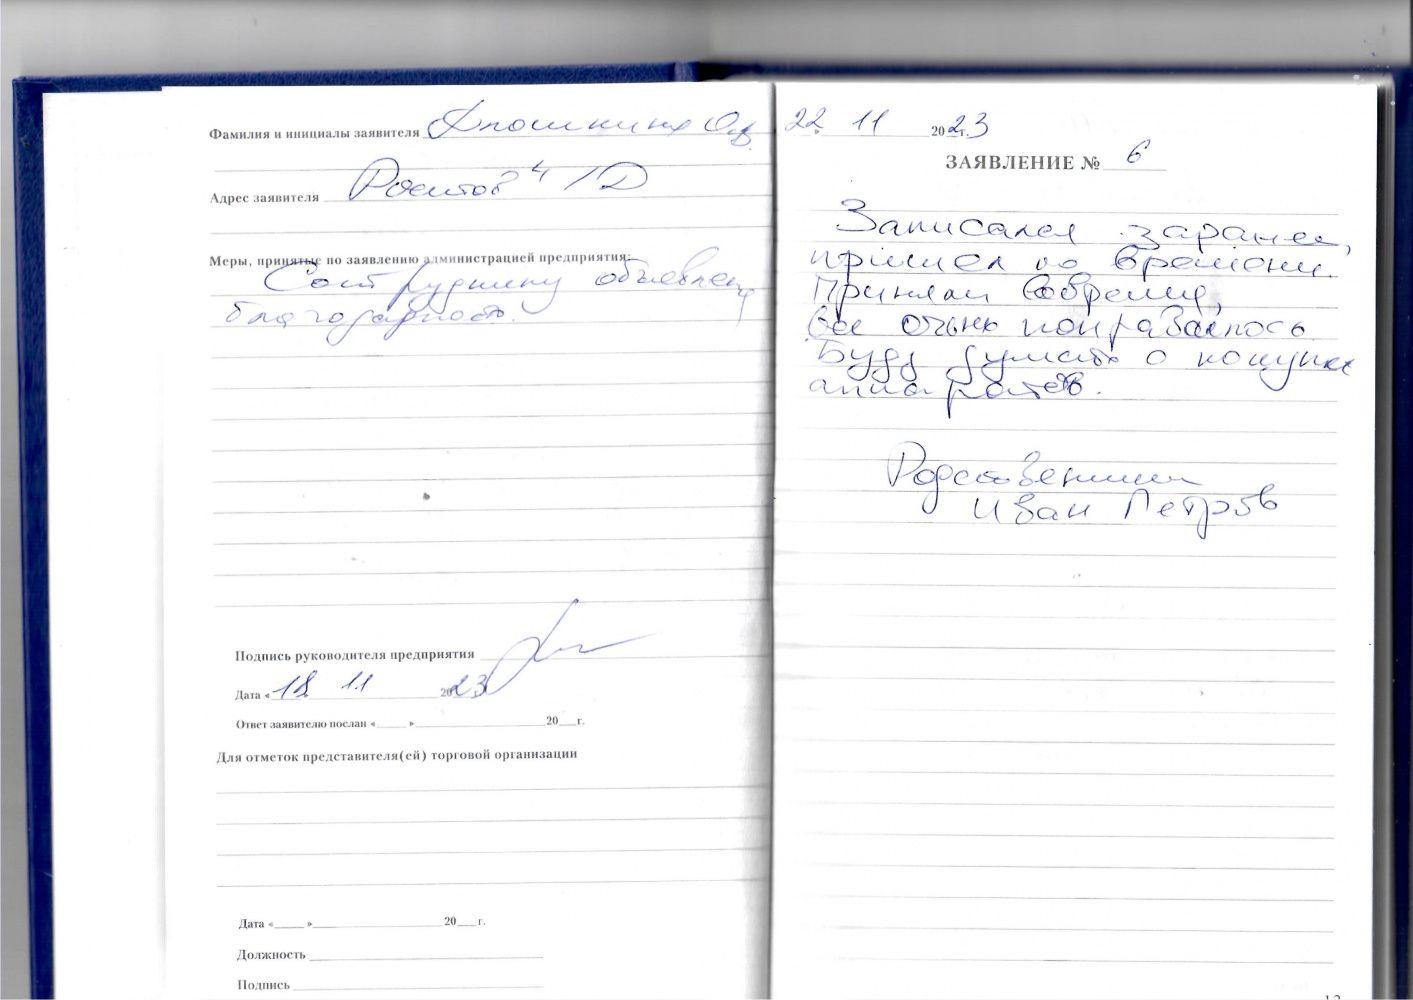 Фамилия и инициалы заявителя
Адрес заявителя Ростов н/Д
Меры, принятые по заявлению администрацией предприятия:
Сотруднику объявлена
благодарность.
Подпись руководителя предприятия
Дата « 18 11 2023
Ответ заявителю послан «____» ____ 20__г.
Для отметок представителя(ей) торговой организации
Дата «____» ____ 20__ г.
Должность
Подпись
22 11 2023
г.
ЗАЯВЛЕНИЕ № 6
Записался заранее,
пришел по времени.
Приняли вовремя,
все очень понравилось
Буду думать о покупке
аппаратов.
Родственник
Иван Петров